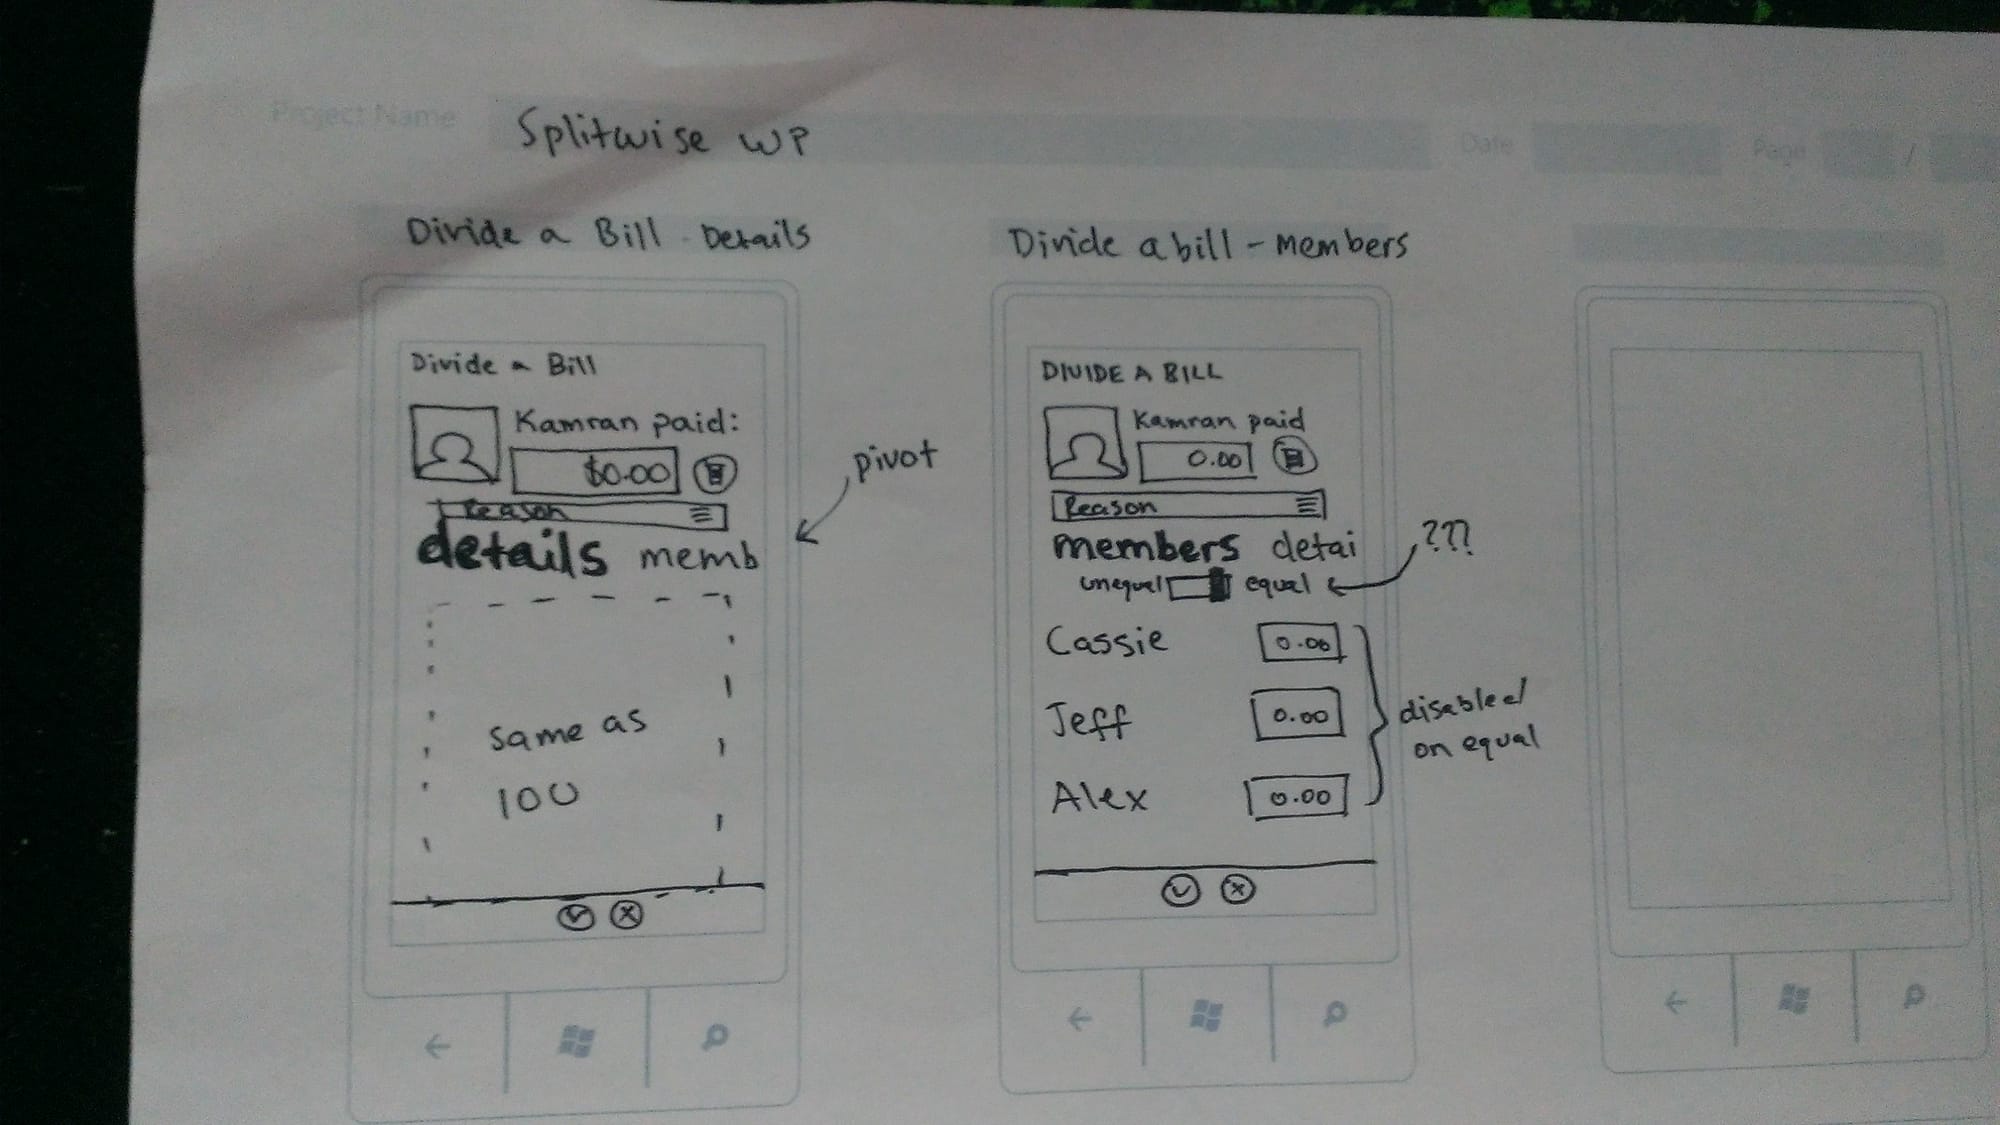 Project Name
Splitwise WP
Date
Page
/
Divide a Bill - Details
Divide a Bill
Kamran paid:
$0.00
Reason
details memb
same as
IOU
pivot
Divide a bill - members
DIVIDE A BILL
Kamran paid
0.00
Reason
members detai
unequal equal
???
Cassie 0.00
Jeff 0.00
Alex 0.00
disabled
on equal